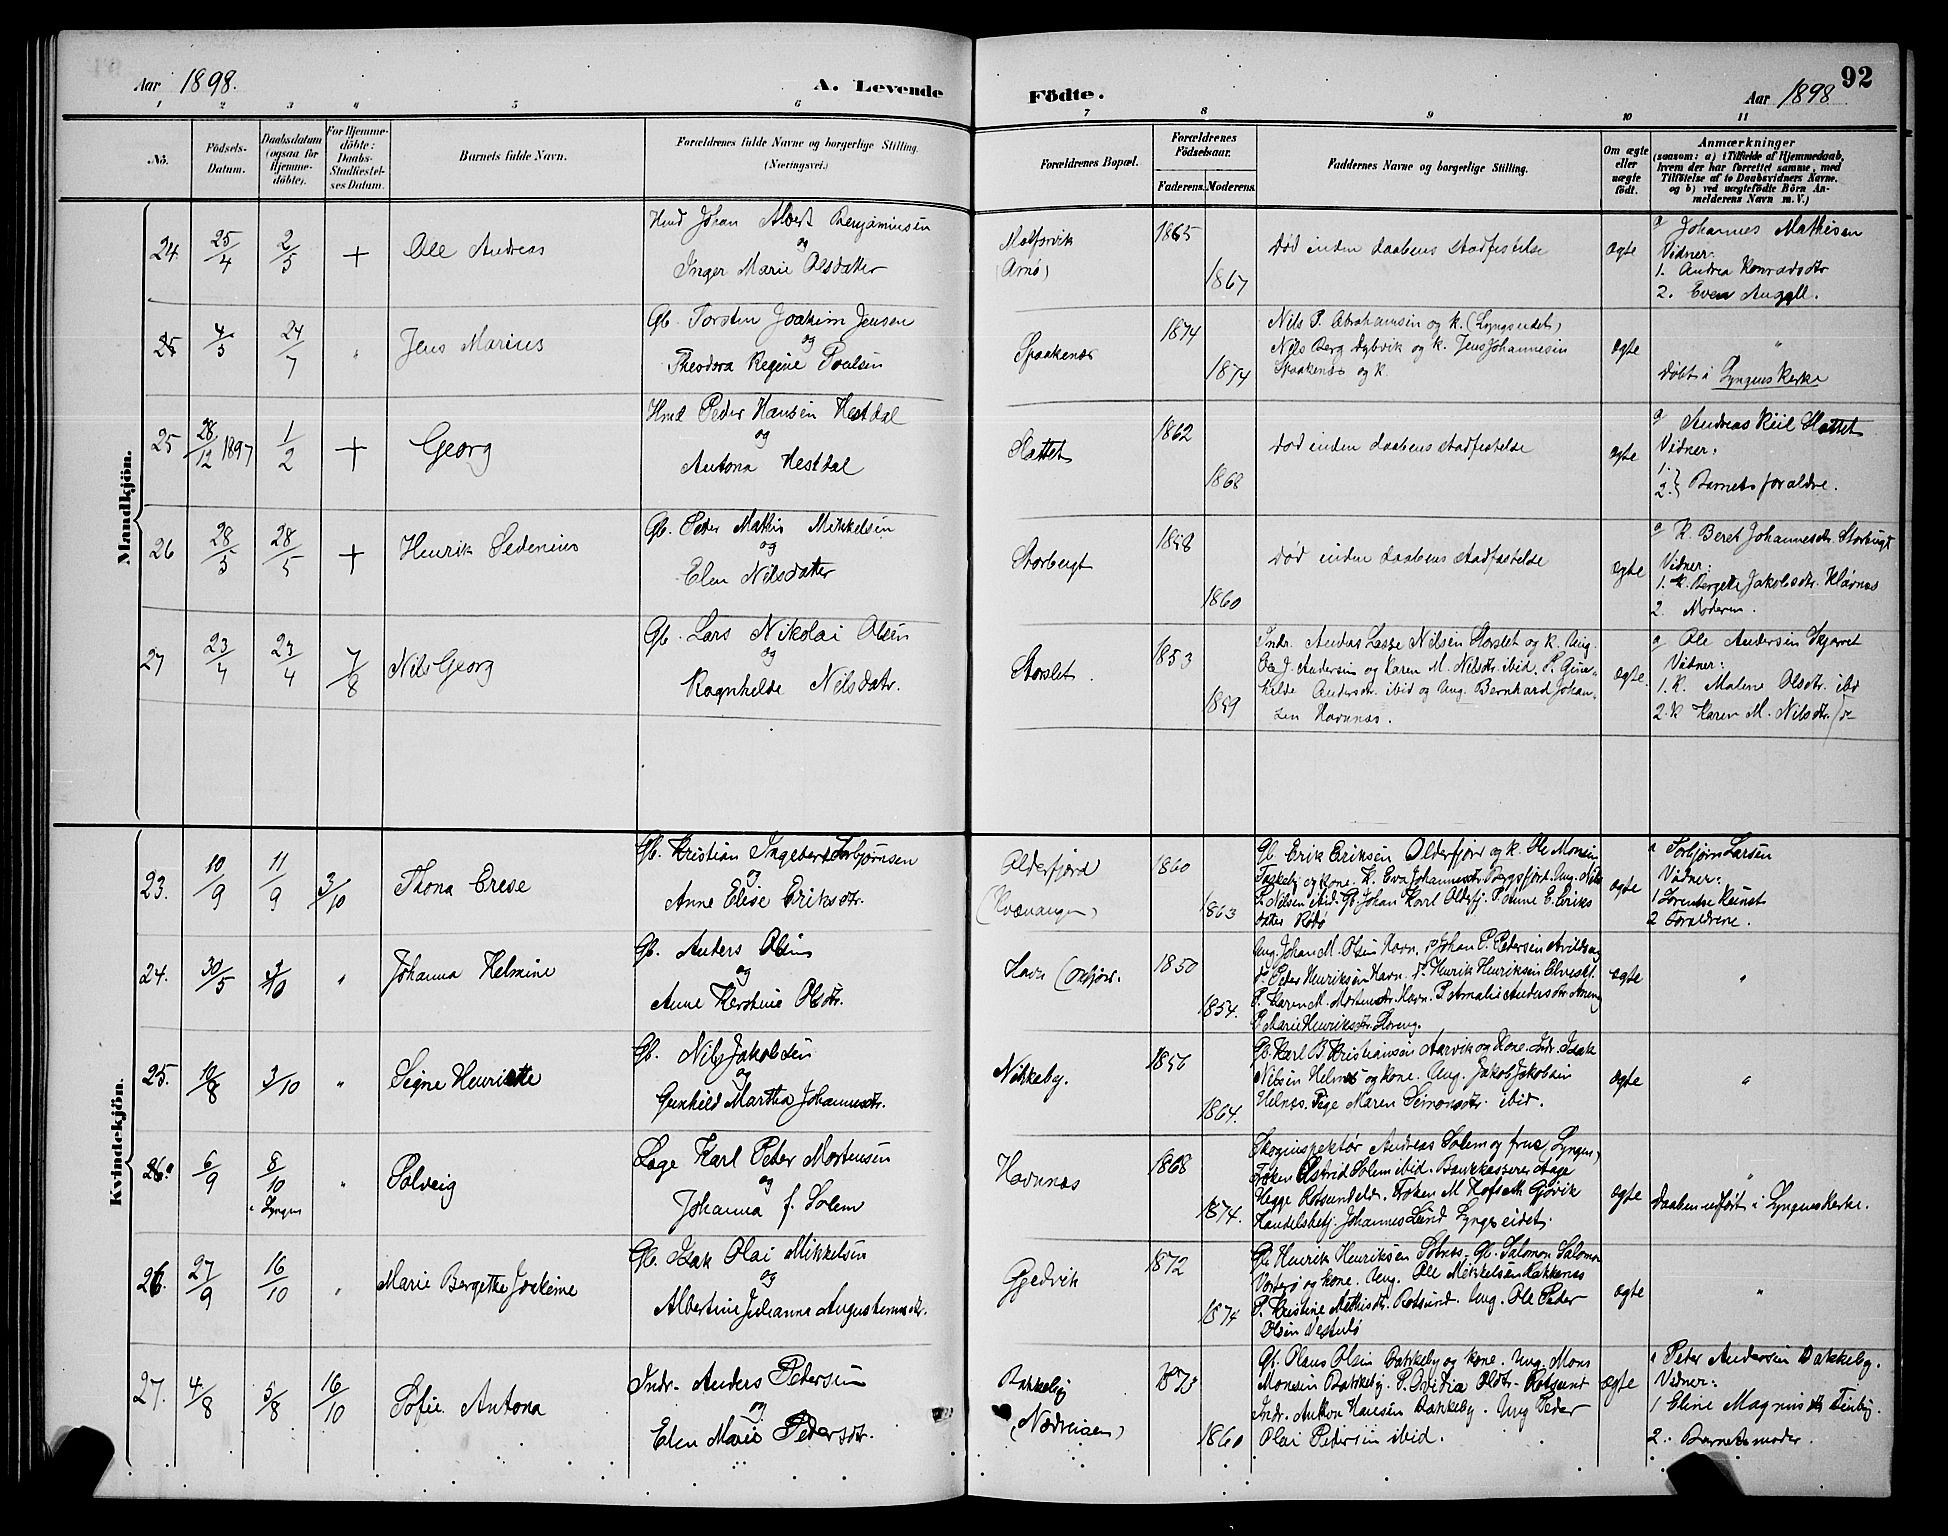 Aar 1898.
A. Levende
Födte.
Aar 1898
92
1 2 3 4 5 6 7 8 9 10 11
No.
Födsels-Datum.
Daabsdatum (ogsaa for Hjemme-döbte).
For Hjemme-döbte: Daabs-Stadfæstel-ses Datum.
Barnets fulde Navn.
Forældrenes fulde Navne og borgerlige Stilling. (Næringsvei.)
Forældrenes Bopæl.
Forældrenes Födselsaar.
Faderens. Moderens.
Faddernes Navne og borgerlige Stilling.
Om ægte eller uægte födt.
Anmærkninger
(saasom: a) i Tilfælde af Hjemmedaab,
hvem der har forrettet samme, med
Tilföielse af to Daabsvidners Navne.
og b) ved uægtefödte Börn An-
melderens Navn m. V.)
Mandkjön.
24 25/4 2/5 + Ole Andreas
Hmd Johan Albert Benjaminsen
og
Inger Marie Olsdatter
(Arnö)
1865
1867
Död inden daabens stadfestelse
ægte
a Johannes Mathisen
Vidner:
1. Andrea Konradsdtr
2. Even Angell.
25 4/5 24/7 " Jens Marius
Gb. Torsten Joakim Jensen
og
Theodora Regine Poulsen
Spaakenæs
1874
1874
Nils P. Abrahamsen og k. (Lyngseidet)
Nils Berg Dybvik og k. Jens Johannesen
Spaakenæs og k.
ægte
"
Döbt i Lyngens Kerke
25 28/12 1897 1/2 + Georg
Hmd Peder Hansen Hestdal
og
Antona Hestdal
Slettet
1862
1868
Död inden daabens stadfestelse
ægte
a Andreas Keil Slettet
Vidner:
1.
2. } Barnets forældre.
26 28/5 28/5 + Henrik Sedenius
Gb. Peder Mathis Mikkelsen
og
Elen Nilsdatter
Storbugt
1858
1860
Död inden daabens stadfæstelse
ægte
a K. Beret Johannesdtr. Storbugt
Vidner:
1. K. Bergette Jakobsdtr. Havnæs
2. Moderen.
27 23/4 23/4 7/8 Nils Georg
Gb. Lars Nikolai Olsen
og
Ragnhilde Nilsdatr.
Storslet.
1853
1859
Indr. Andas Lasse Nilsen Storslet og k. Ung.
Ole J. Andersen og Karen M. Nilsdtr ibid. P. Guna-
hilde Andersdtr. ibid og Ung. Bernhard Johan-
sen Havnnæs.
ægte.
a Ole Andersen
Vidner:
1. K. Malene Olsdtr. ibd
2. K Karen M. Nilsdtr.
Kvindekjön.
23. 10/9 11/9 3/10 Thona Crese
Gb. Kristian Ingebert Torbjørnsen
og
Anne Elise Eriksdtr.
Olderfjord
(Kvænangen)
1860
1863
Gb. Erik Eriksen Olderfjør og k. Ole Monsen
og kone. K. Eva Johannesdtr. Bergsfjord. Ung. Nils
Nilsen ibid. Gb. Johan Karl Olderfj. P. Anne E. Eriks
datter Rödö
ægte
a Torbjørn Larsen
Vidner:
1 Lorentse Kunst
2 Forældrene.
24. 30/5 3/10 " Johanna Helmine
Gb. Anders Olsen
og
Anne Kerstine Olsdtr.
Havn
1850
1854.
Ung. Johan M. Olsen Havn. Johan P. Pedersen
Peder Henriksen Havn. Henrik Henriksen Elvevolt.
P. Karen M. Mortensdtr. Havn. P. Amalie Andersdtr
P Marie Henriksdtr.
ægte
"
25. 10/8 3/10 " Signe Henriette
Gb. Nils Jakobsen
og
Gunhild Martha Johannesdtr.
Nikkeby.
1856
1864.
Gb. Karl B. Kristiansen Aarvik og Kone. Indr. Isak
Nilsen Helnes og kone. Ung. Jakob Jakobsen
Helnes. Pige Maren Simonsdtr. ibid.
ægte
"
26. 6/9 8/10 i Lyngen " Solveig
Læge Karl Peter Mortensen
og
Johanna f. Solem
Havnnæs
1868
1874.
Skoginspektør Andreas Solem og frue (Lyngen)
Frøken Astrid Solem ibid. Bankkasserer Aage
Hegge Rotsundeidet. Frøken M. Hofseth Gjøvik
Handelsbetj. Johannes Lund Lyngseidet.
ægte
"
Daaben udført i Lyngens Kerke.
26 27/9 16/10 " Marie Bergette Joakime
Gb. Isak Olai Mikkelsen
og
Albertine Julianna Augustinusdtr.
Gjedvik
1872
1874
Gb. Henrik Henriksen Sobnes. Gb. Salomon Salomon
Vorterö og kone. Ung. Ole Mikkelsen Kakkenæs
P. Kristine Mathisdtr. Rotsund. Ung. Ole Peder
Olsen
ægte
"
27. 4/8 5/8 16/10 Sofie Antona
Indr. Anders Pedersen
og
Elen Marie Pedersdtr.
Bakkeby
(Nordreisen)
1873
1860
Gb. Olaus Olsen Bakkeby og kone. Ung. Mons
Monsen Bakkeby. P. Ovidia Olsdtr. Rotsund
Indr. Anton Hansen Bakkeby. Ung Peder
Olai Pedersen ibid.
ægte
a Peder Andersen Bakkeby.
Vidner:
1 Eline Magnusdtr
2. Barnets moder.